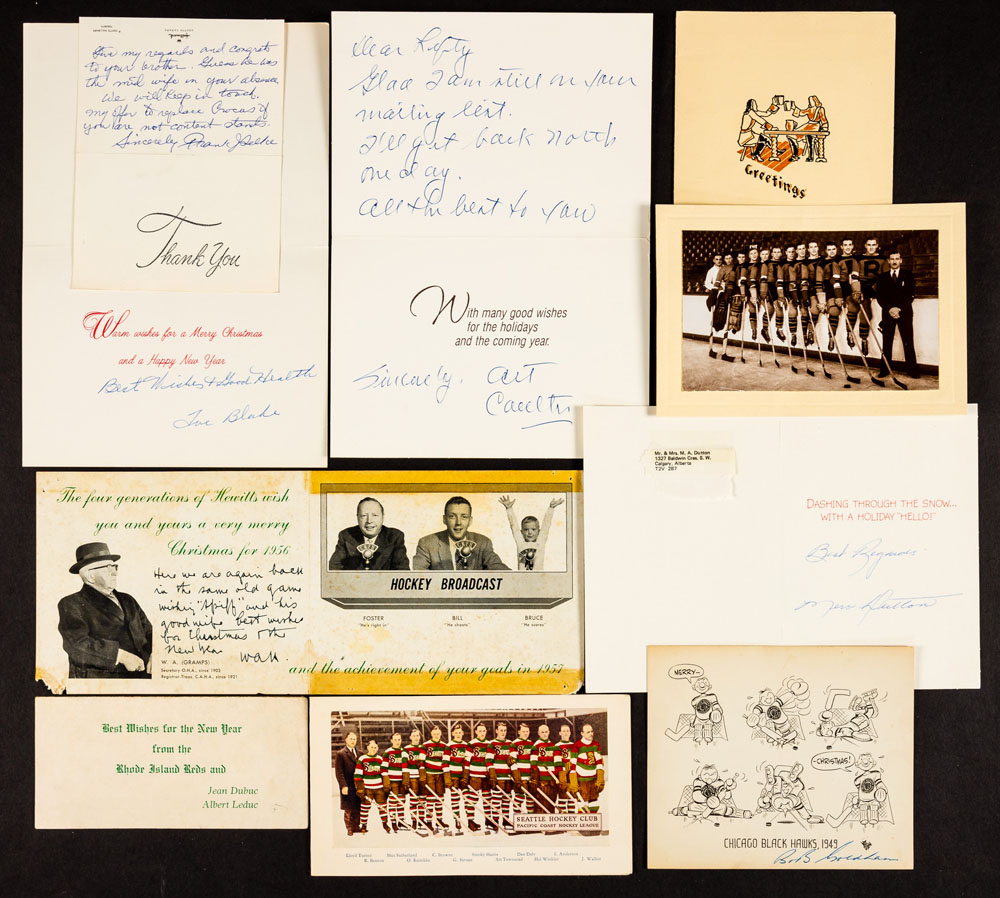 Give my regards and congrats
to your brother. Guess he was
the mid wife in your absence
We will keep in touch.
my offer to replace Crocus if
you are not content stands.
Sincerely Frank J Selke
Thank You
Warm wishes for a Merry Christmas
and a Happy New Year
Best Wishes & Good Health
Toe Blake
Dear Lefty
Glad I am still on your
mailing list.
I'll get back North
one day.
All the best to you
With many good wishes
for the holidays
and the coming year.
Sincerely. Art
Coulter
Greetings
Mr. & Mrs. M. A. Dutton
1327 Baldwin Cres. S. W.
Calgary, Alberta
T2V 2B7
DASHING THROUGH THE SNOW...
WITH A HOLIDAY "HELLO!"
Best Regards.
Merv Dutton
The four generations of Hewitts wish
you and yours a very merry
Christmas for 1956
Here we are again back
in the same old game
wishing "Spiff" and his
good wife best wishes
for Christmas & the
New Year
WAH.
W. A. (GRAMPS)
Secretary O.H.A., since 1903
Registrar-Treas. C.A.H.A., since 1921
HOCKEY BROADCAST
FOSTER
"He's right in"
BILL
"He shoots"
BRUCE
"He scores"
and the achievement of your goals in 1957
Best Wishes for the New Year
from the
Rhode Island Reds and
Jean Dubuc
Albert Leduc
SEATTLE HOCKEY CLUB
PACIFIC COAST HOCKEY LEAGUE
MERRY-
-CHRISTMAS!
CHICAGO BLACK HAWKS, 1949
Bob Goldham